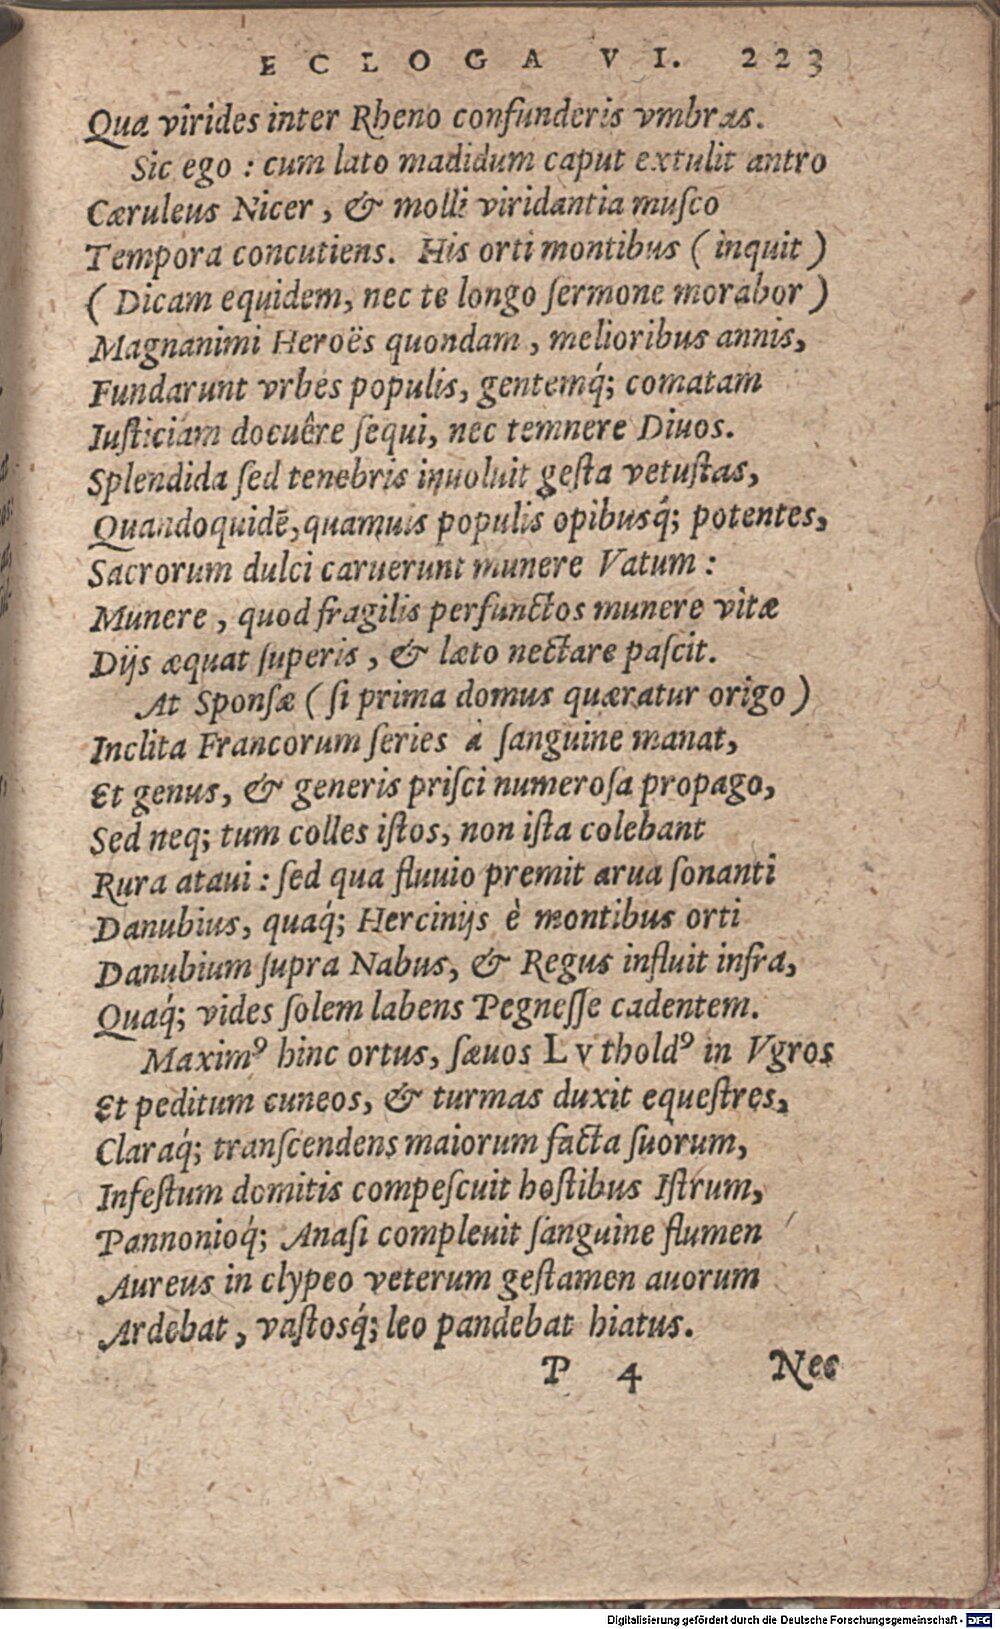 ECLOGA VI. 223
Qua virides inter Rheno confunderis vmbras.
Sic ego : cum lato madidum caput extulit antro
Cæruleus Nicer, & molli viridantia muſco
Tempora concutiens. His orti montibus ( inquit )
( Dicam equidem, nec te longo ſermone morabor )
Magnanimi Heroës quondam, melioribus annis,
Fundarunt vrbes populis, gentemq́; comatam
Iuſticiam docuêre ſequi, nec temnere Diuos.
Splendida ſed tenebris inuoluit geſta vetuſtas,
Quandoquidē, quamuis populis opibusq́; potentes,
Sacrorum dulci caruerunt munere Vatum :
Munere, quod fragilis perfunctos munere vitæ
Dijs æquat ſuperis, & læto nectare paſcit.
At Sponſæ ( ſi prima domus quæratur origo )
Inclita Francorum ſeries à ſanguine manat,
Et genus, & generis priſci numeroſa propago,
Sed neq; tum colles iſtos, non iſta colebant
Rura ataui : ſed qua fluuio premit arua ſonanti
Danubius, quaq́; Hercinijs è montibus orti
Danubium ſupra Nabus, & Regus influit infra,
Quaq́; vides ſolem labens Pegneſſe cadentem.
Maximꝰ hinc ortus, ſæuos LVtholdꝰ in Vgros
Et peditum cuneos, & turmas duxit equeſtres,
Claraq́; tranſcendens maiorum facta ſuorum,
Infeſtum domitis compeſcuit hoſtibus Iſtrum,
Pannonioq́; Anaſi compleuit ſanguine flumen
Aureus in clypeo veterum geſtamen auorum
Ardebat, vaſtosq́; leo pandebat hiatus.
P 4 Nec
Digitalisierung gefördert durch die Deutsche Forschungsgemeinschaft - DFG